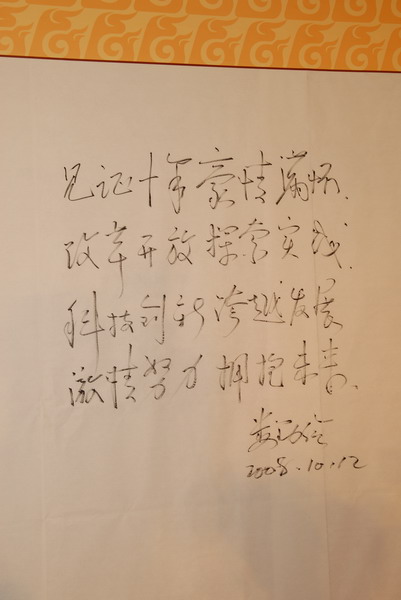 见证十年豪情满怀.
改革开放探索实践.
科技创新跨越发展
激情努力拥抱未来.
2008.10.12